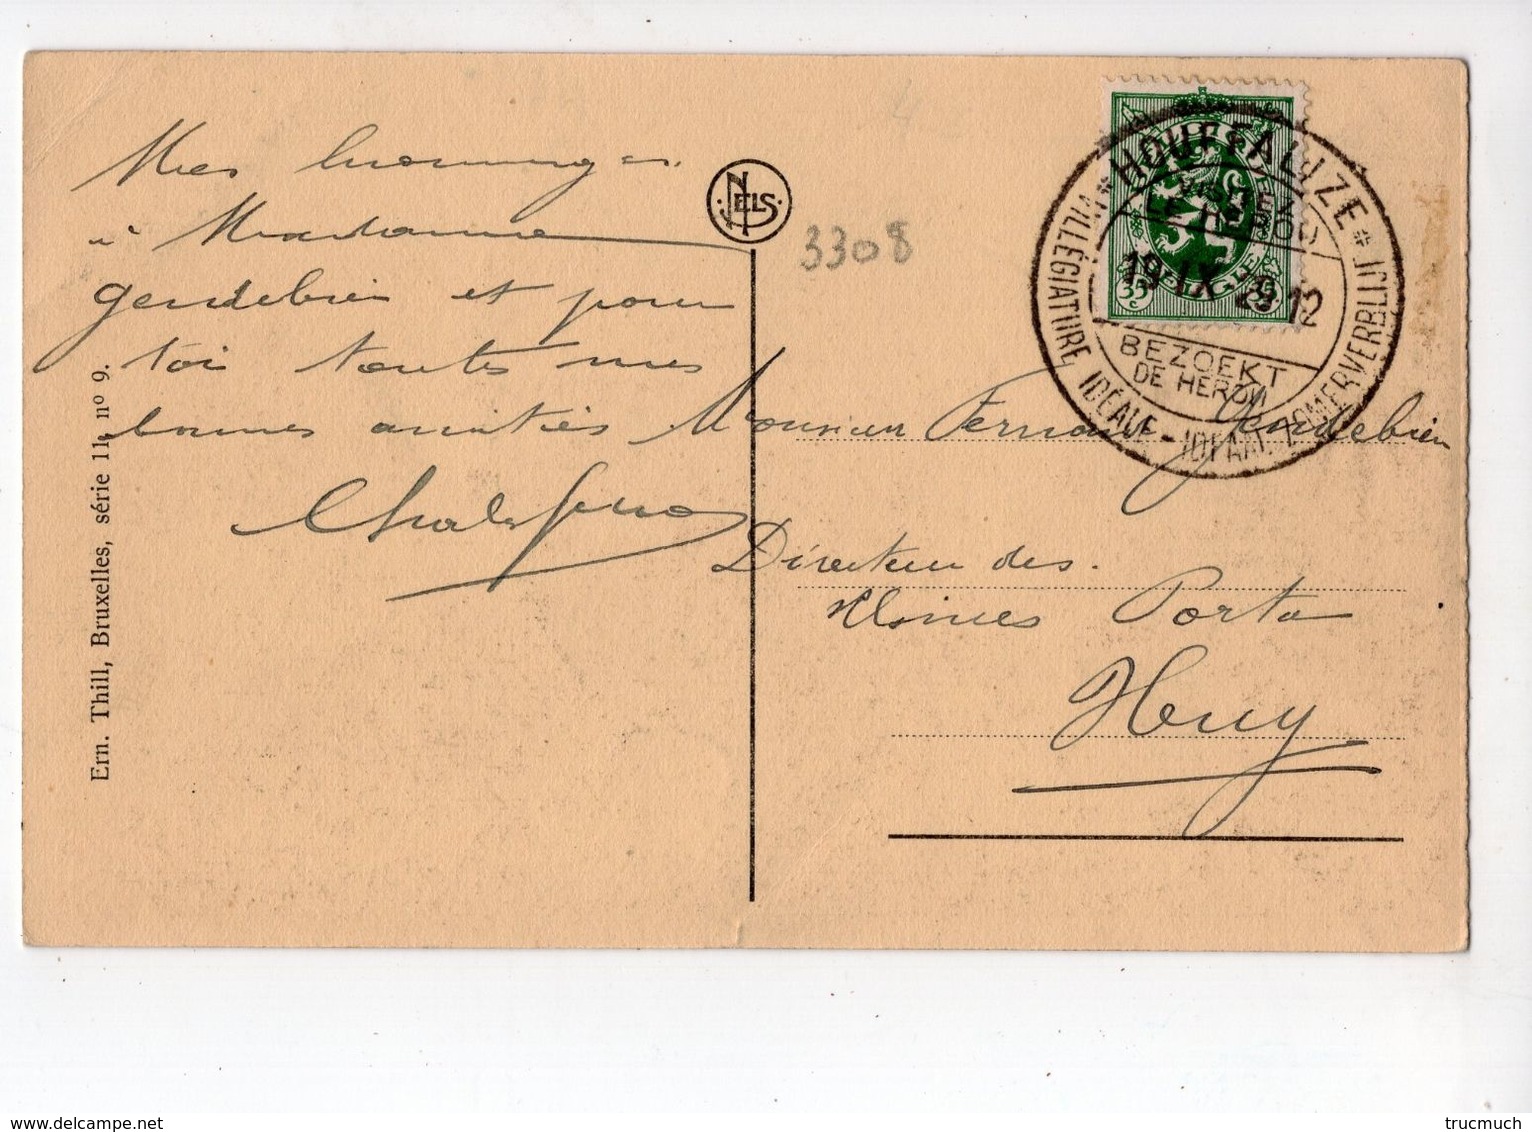 Mes hommages
à Madame
Gendebien et pour
toi toutes mes
bonnes amitiés
NELS
3308
HOUFFALIZE
VISITEZ
LE HÉROU
19-IX 29 12
BEZOEKT
DE HEROU
VILLÉGIATURE IDÉALE - IDEAAL ZOMERVERBLIJF
35 c 35 c
Monsieur Fernand Gendebien
Directeur des
Usines Porta
Huy
Ern. Thill, Bruxelles, série 11, nº 9.
trucmuch